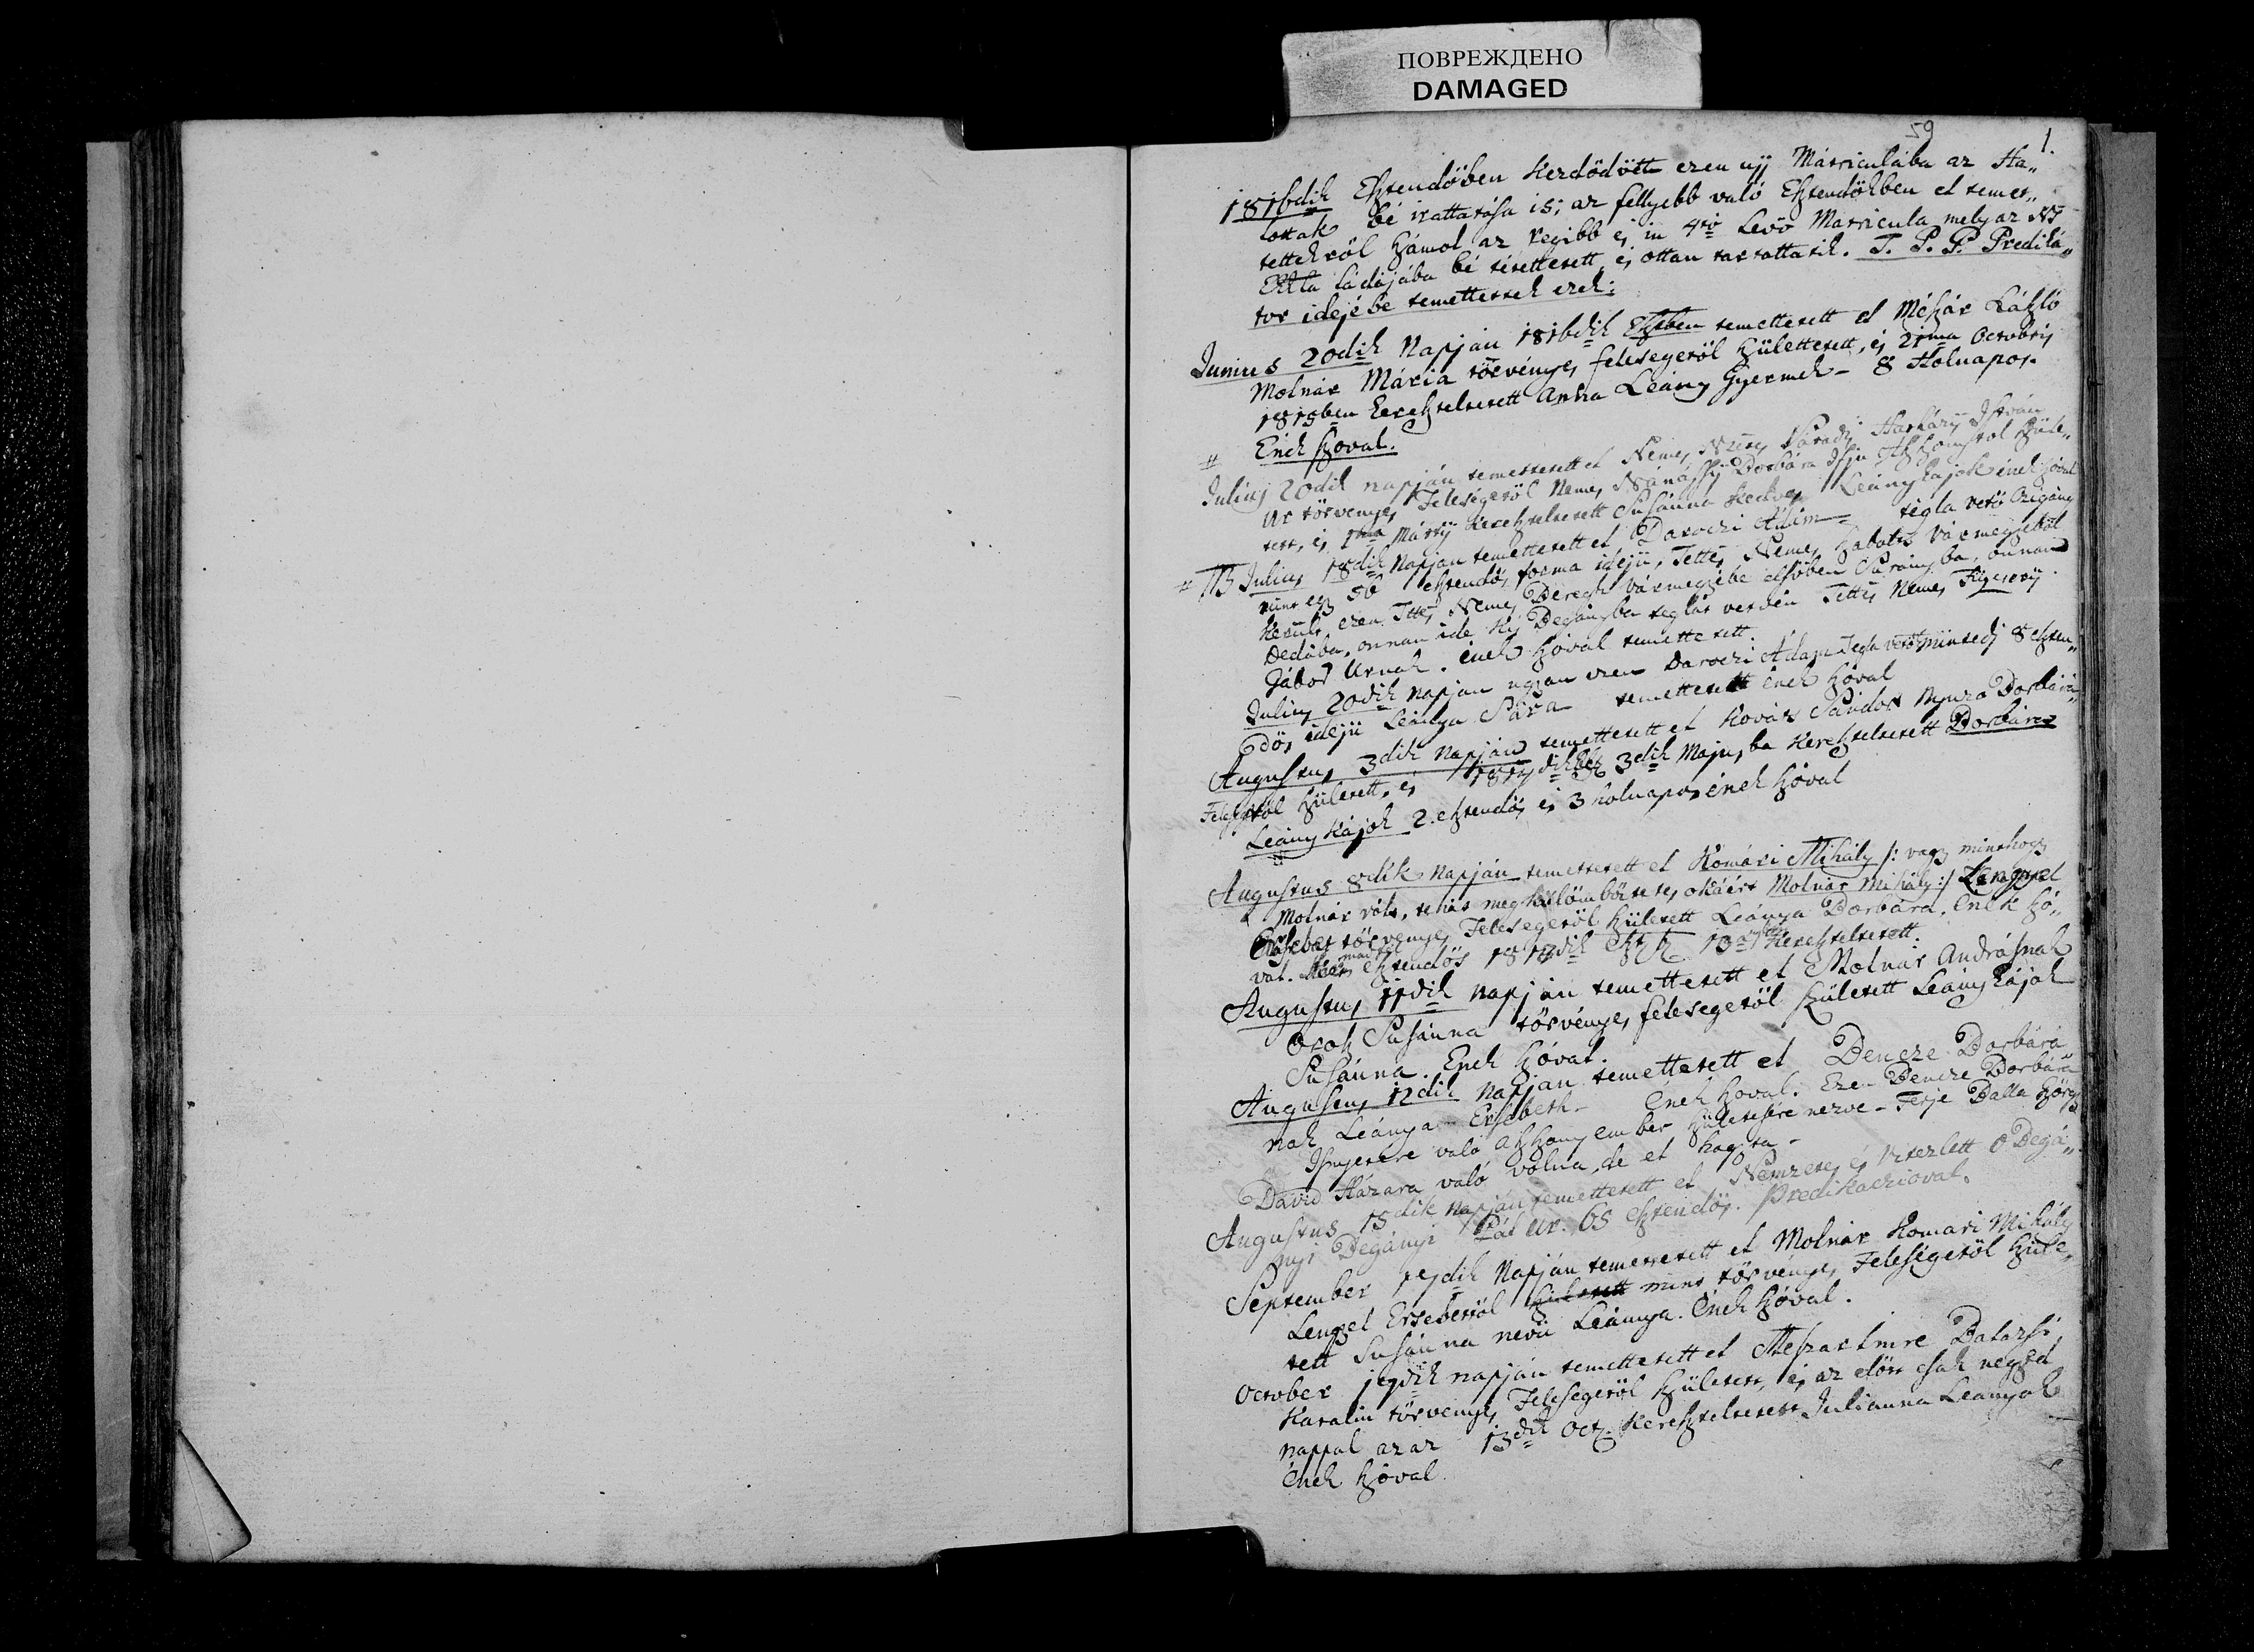 ПОВРЕЖДЕНО
DAMAGED
59
1.
1816dik Esztendőben kezdödött ezen ujj Mátriculába az Ha„
lottak bé irattatása is; az fellyebb való Esztendőkben el temet„
tettekről számol az régibb és in 4to Levő Matricula mely az Ns
Ekla ládájába bé tétettetett, és ottan tartattatik. T. P. P. Prediká„
tor idejébe temettettek ezek:
Junius 20dik Napján 1816dik Eszben temettetett el Mészár László
Molnár Mária törvényes feleségetöl születtetett, és 21ma Octobris
1815ben Kereszteltetett Anna Leány Gyermek – 8 Holnapos.
Ének szoval.
Julius 20dik napján temettetett el Nemes Nztes Váradi István
Ur törvenyes Feleségetöl Nemes Nánássy Borbára Ifju Aszszonytol szüle„
tett, és 1ma Martÿ Kereszteltetett Susánna kedves Leánykájok ének szóval
NB Julius 18dik Napján temettetett el Daroczi Ádám tégla vető Czigány
mint egy 56 esztendős forma idejü, Tettes Nemes Szabolts Vármegyéböl
került, ezen Ttes Nemes Beregh Vármegyébe elsöben Surányba, onnan
Dedába, onnan ide Kis Begányba téglát vetvén Tettes Nemes
Gábor Urnak. ének szóval temettetett.
Julius 20dik napjan ugyan ezen Daroczi Ádám Tegla vetö mintedj 8 eszten„
dös idejü Leánya Sára temettetett ének szóval
Augustus 3dik napján temettetett el Kovács Sándor Borbára
Felesegtöl született, és 3dik Majusba Keresztelt­etett Borbára
Leánykájok 2. esztendős és 3 holnapos ének szóval
Augustus 8dik napján temettetett el Komári Mihály /: vagy minthogy
Molnár vólt, tehát meg külömböztetés okáért Molnár Mihály :/ Lengyel
Ersébet törvenyes Feleségetöl született Leánya Borbára. Ének szó„
val. esztendös Keresztelt­etett.
Augustus 11dik napján temettetett el Molnár Andrásnak
Orosz Susánna törvényes feleségetöl született Leánykájok
Susánna. Ének szóval.
Augustus 12dik Napján temettetett el Bencze Borbárá
nak Leánya – Ersébeth – Ének szoval. Ezen Bencze Borbára
való aszszony ember születésére nézve – Férje Balla György
Dávid Házara való volna, de el hagyta –
Augustus 15dik napján temettetett el Nemzetes és Vitézlett O Begá„
nyi Begányi Pál Ur. 65 esztendős. Prédikáczioval.
September napján temettetett el Molnár Komari Mihály
Lengyel Ersébettöl született mint törvenyes Feleségetöl szüle„
tett Susánna nevü Leánya. Ének szóval.
October napján temettetett el Meszár Imre Balázsi
Katalin törvenyes Feleségetöl született, és az elött csak negyed
nappal az az 13dik Oct. Keresztelt­etett Julianna Leányok
Ének szoval.